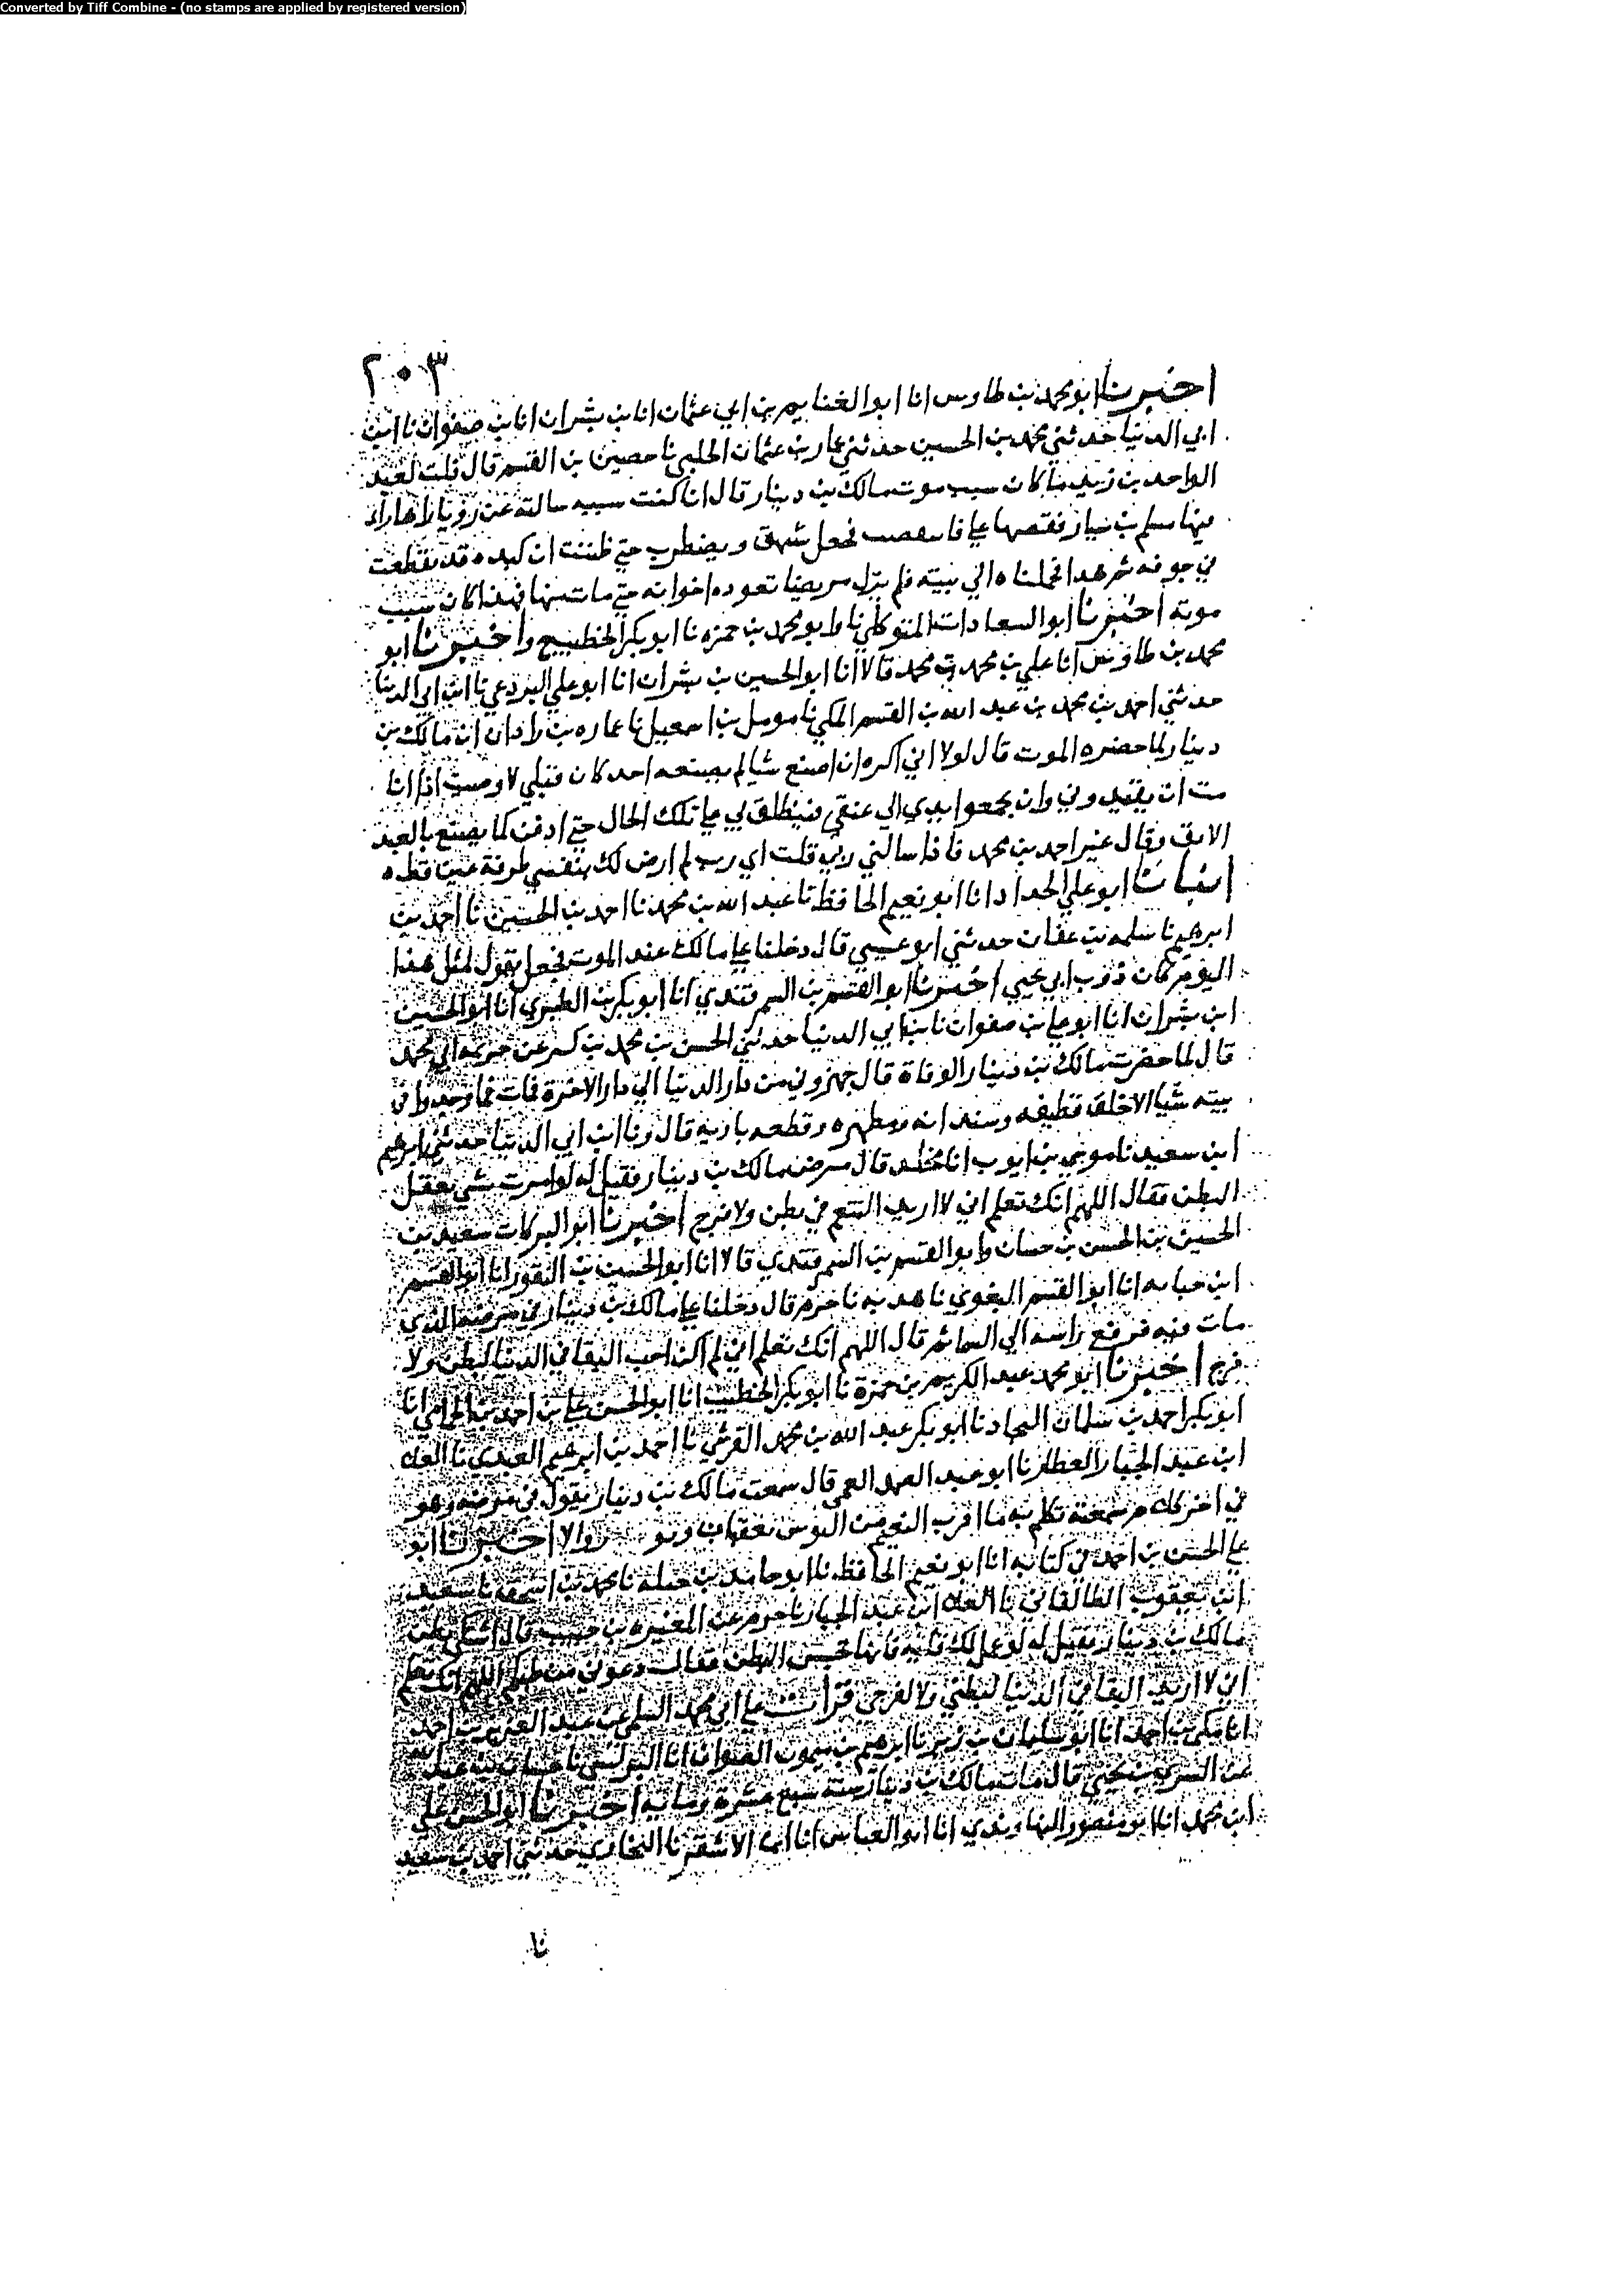 Converted by Tiff Combine - (no stamps are applied by registered version)
٢٠٣
اخبرنا ابو محمد بن طاوس انا ابو الغنايم بن ابي عثمان انا بن بشران انا بن صفوان نا ابن
ابي الدنيا حدثني محمد بن الحسين حدثني عمار بن عثمان الحلبي نا حصين بن القسم قال قلت لعبد
الواحد بن زيد ما كان سبب موت مالك بن دينار قال انا كنت سببه سالته عن رويا راها راى
فيها مسلم بن يسار فقصها علي فجعل يشهق ويضطرب حتى ظننت ان كبده قد تقطعت
في جوفه ثم هدا فحملناه الي بيته فلم يزل مريضا تعوده اخوانه حتي مات منها فهذا كان سبب
موته اخبرنا ابو السعادات المتوكلي نا وابو محمد بن حمزه نا ابو بكر الخطيب ح واخبرنا ابو
محمد بن طاوس انا علي بن محمد بن محمد قالا انا ابو الحسين بن بشران انا ابو علي البردعي نا ابن ابي الدنيا
حدثني احمد بن محمد بن عبد الله بن القسم المكي نا مومل بن اسمعيل نا عماره بن زادان ان مالك بن
دينار لما حضره الموت قال لولا اني اكره ان اصنع شيا لم يصنعه احد كان قبلي لاوصيت اذا انا
مت ان يقيدوني وان يجمعوا يدي الي عنقي فينطلق بي علي تلك الحال حتي ادفن كما يصنع بالعبد
الابق وقال غير احمد بن محمد فاذا سالني ربي قلت اي رب لم ارض لك بنفسي طرفة عين قط ه
انبانا ابو علي الحداد انا ابو نعيم الحافظ نا عبد الله بن محمد نا احمد بن الحسين نا احمد بن
ابرهيم نا سلمه بن عفان حدثني ابو عيسي قال دخلنا علي مالك عند الموت فجعل يقول لمثل هذا
اليوم كان دوب ابي يحيي اخبرنا ابو القسم بن السمرقندي انا ابو بكر بن الطبري انا ابو الحسين
ابن بشران انا ابو علي بن صفوان نا بن ابي الدنيا حدثني الحسن بن محمد بن عن ابي محمد
قال لما حضرت مالك بن دينار الوفاة قال جهزوني من دار الدنيا الي دار الاخرة فمات فما وجدوا في
بيته شيا الا خلق قطيفه وسندانه ومطهره وقطعه باريه قال ونا ابن ابي الدنيا حدثني ابرهيم
ابن سعيد نا موسي بن ايوب انا مخلد قال مرض مالك بن دينار فقيل له لو امرت بشي يعقل
البطن فقال اللهم انك تعلم اني لا اريد التنعم في بطن ولا فرج اخبرنا ابو البركات سعيد بن
الحسين بن الحسن بن حسان وابو القسم بن السمرقندي قالا انا ابو الحسين بن النقور انا ابو القسم
ابن حبابه انا ابو القسم البغوي نا هدبه نا حزم قال دخلنا علي مالك بن دينار في مرضه الذي
مات فيه فرفع راسه الي السما ثم قال اللهم انك تعلم اني لم اكن احب البقا في الدنيا لبطن ولا
فرج اخبرنا ابو محمد عبد الكريم بن حمزة نا ابو بكر الخطيب انا ابو الحسن علي بن احمد بن الحمامي انا
ابو بكر احمد بن سلمان النجاد نا ابو بكر عبد الله بن محمد القرشي نا احمد بن ابرهيم العبدي نا العلا
ابن عبد الجبار العطار نا ابو عبد الصمد العمي قال سمعت مالك بن دينار يقول في مرضه وهو
في اخر كلام سمعته تكلم به ما اقرب النعيم من البوس يعقبان زوالا اخبرنا ابو
علي الحسن بن احمد في كتابه انا ابو نعيم الحافظ نا ابو حامد بن جبله نا محمد بن اسحق نا سعيد
ابن يعقوب الطالقاني نا العلا ابن عبد الجبار نا حزم عن المغيره بن حبيب قال اشتكي بطن
مالك بن دينار فقيل له لو عمل لك قليه فانها تحبس البطن فقال دعوني من طبكم اللهم انك تعلم
اني لا اريد البقا في الدنيا لبطني ولا لفرجي قرات علي ابي محمد السلمي عن عبد العزيز بن احمد
انا مكي بن احمد انا ابو سليمان بن زبر نا ابرهيم بن ميمون الصواف انا البرلسي نا غسان بن عبد الله
عن السري بن يحيي قال مات مالك بن دينار سنة سبع عشرة ومايه اخبرنا ابو الحسن علي
ابن محمد انا ابو منصور النهاوندي انا ابو العباس انا ابن الاشقر نا البخاري حدثني احمد بن سعيد
نا